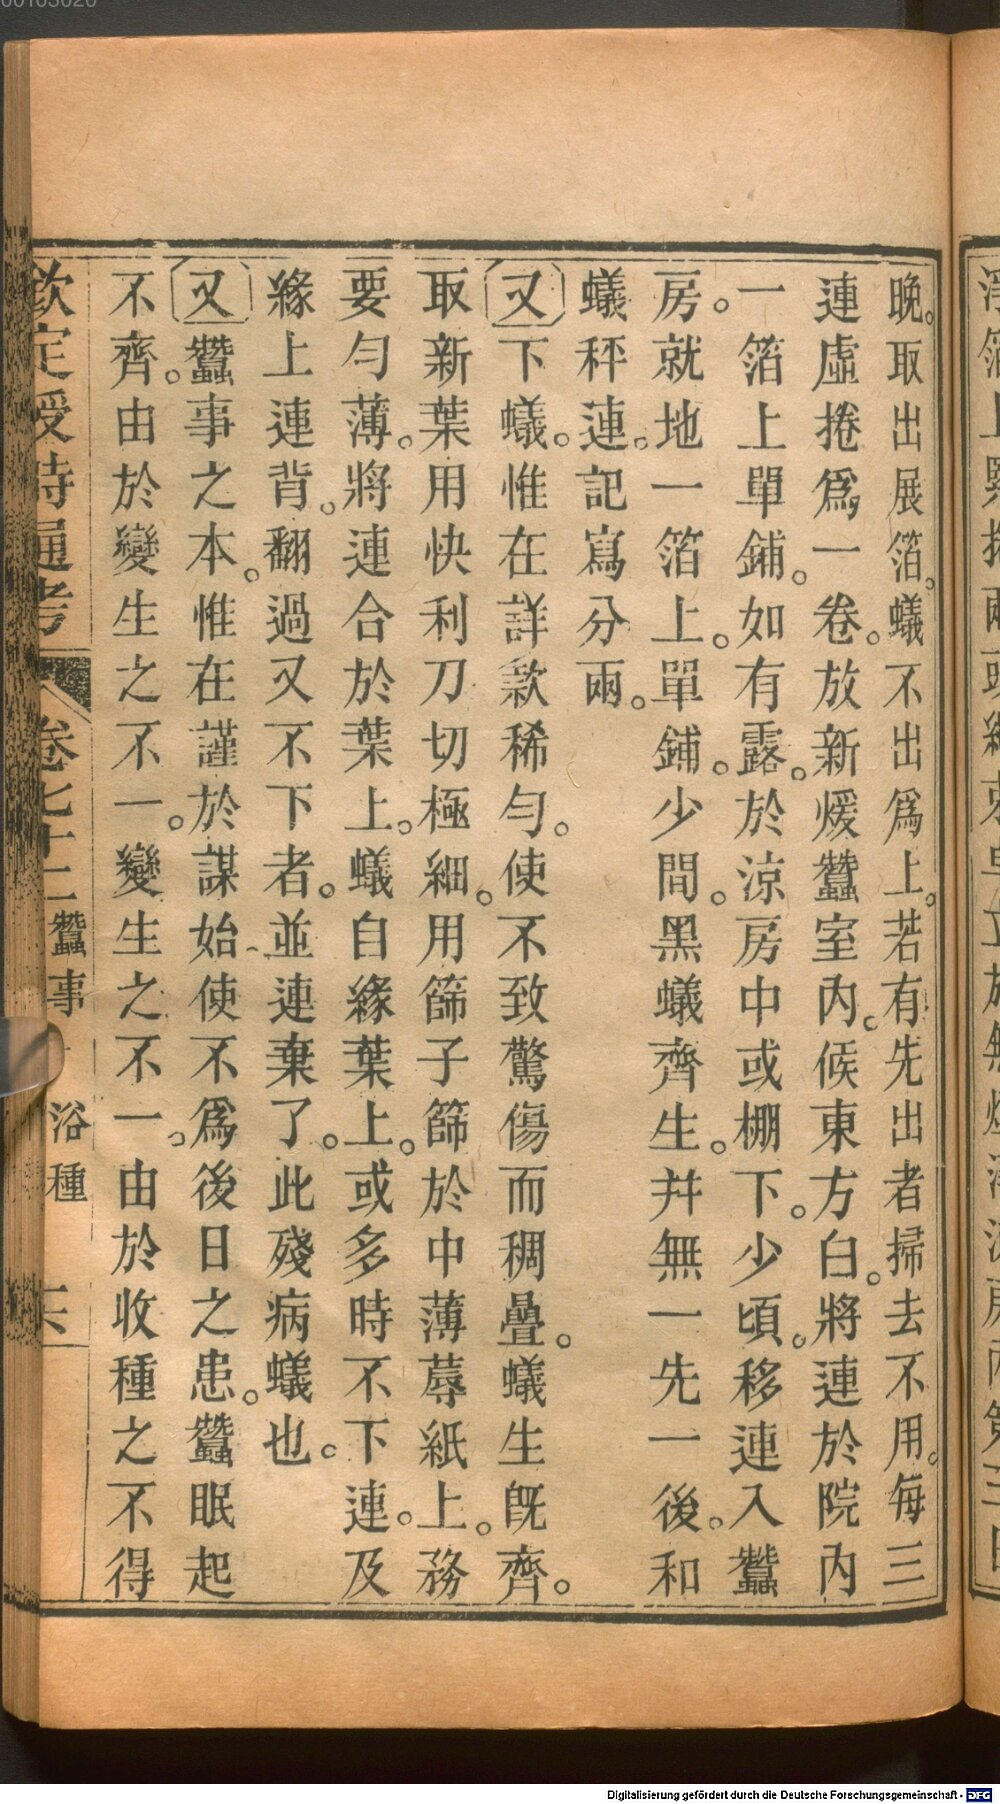 晚。取出展箔。蟻不出爲上。若有先出者掃去不用。每三
連虛捲爲一卷。放新煖蠶室內。候東方白。將連於院內
一箔上單鋪。如有露。於涼房中或棚下。少頃。移連入蠶
房。就地一箔上。單鋪。少間。黑蟻齊生。并無一先一後。和
蟻秤連。記寫分兩。
又下蟻。惟在詳款稀勻。使不致驚傷而稠疊。蟻生旣齊。
取新葉用快利刀切極細。用篩子篩於中薄蓐紙上。務
要勻薄。將連合於葉上。蟻自緣葉上。或多時不下連。及
緣上連背。翻過又不下者。並連棄了。此殘病蟻也。
又蠶事之本。惟在謹於謀始、使不爲後日之患。蠶眠起
不齊。由於變生之不一。變生之不一。由於收種之不得
欽定授時通考 卷七十二蠶事 浴種
00103020
Digitalisierung gefördert durch die Deutsche Forschungsgemeinschaft - DFG